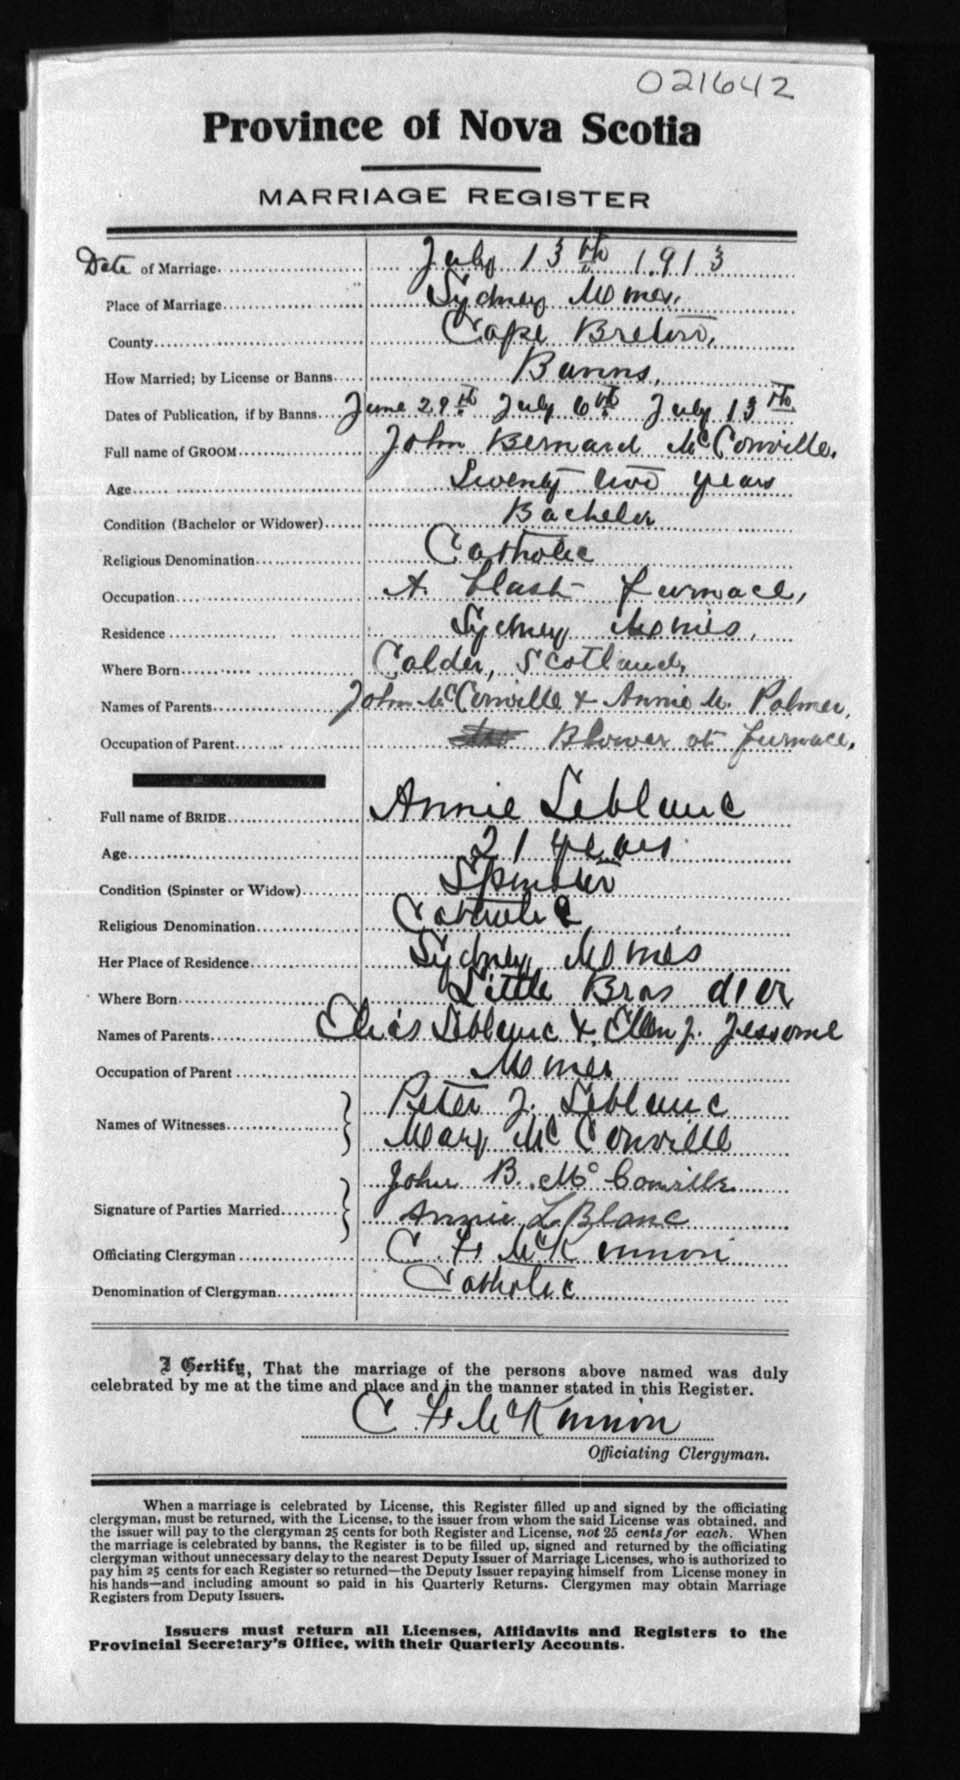 021642
Province of Nova Scotia
MARRIAGE REGISTER
Date of Marriage July 13th 1913
Place of Marriage Sydney Mines,
County Cape Breton,
How Married; by License or Banns Banns,
Dates of Publication, if by Banns June 29th July 6th July 13th
Full name of GROOM John Bernard McConville.
Age Twenty two years
Condition (Bachelor or Widower) Bachelor
Religious Denomination Catholic
Occupation At blast furnace,
Residence Sydney Mines,
Where Born Calder, Scotland,
Names of Parents John McConville & Annie M. Palmer,
Occupation of Parent Blower at furnace,
Full name of BRIDE Annie Leblanc
Age 21 years
Condition (Spinster or Widow) Spinster
Religious Denomination Catholic
Her Place of Residence Sydney Mines
Where Born Little Bras d'or
Names of Parents Elias Leblanc & Ellen J. Jessome
Occupation of Parent Miner
Names of Witnesses Peter J. Leblanc
Mary McConville
Signature of Parties Married John B. McConville
Annie LBlanc
Officiating Clergyman C. F. McKinnon
Denomination of Clergyman Catholic
I Certify, That the marriage of the persons above named was duly
celebrated by me at the time and place and in the manner stated in this Register.
C. F. McKinnon
Officiating Clergyman.
When a marriage is celebrated by License, this Register filled up and signed by the officiating
clergyman, must be returned, with the License, to the issuer from whom the said License was obtained, and
the issuer will pay to the clergyman 25 cents for both Register and License, not 25 cents for each. When
the marriage is celebrated by banns, the Register is to be filled up, signed and returned by the officiating
clergyman without unnecessary delay to the nearest Deputy Issuer of Marriage Licenses, who is authorized to
pay him 25 cents for each Register so returned—the Deputy Issuer repaying himself from License money in
his hands—and including amount so paid in his Quarterly Returns. Clergymen may obtain Marriage
Registers from Deputy Issuers.
Issuers must return all Licenses, Affidavits and Registers to the
Provincial Secretary's Office, with their Quarterly Accounts.